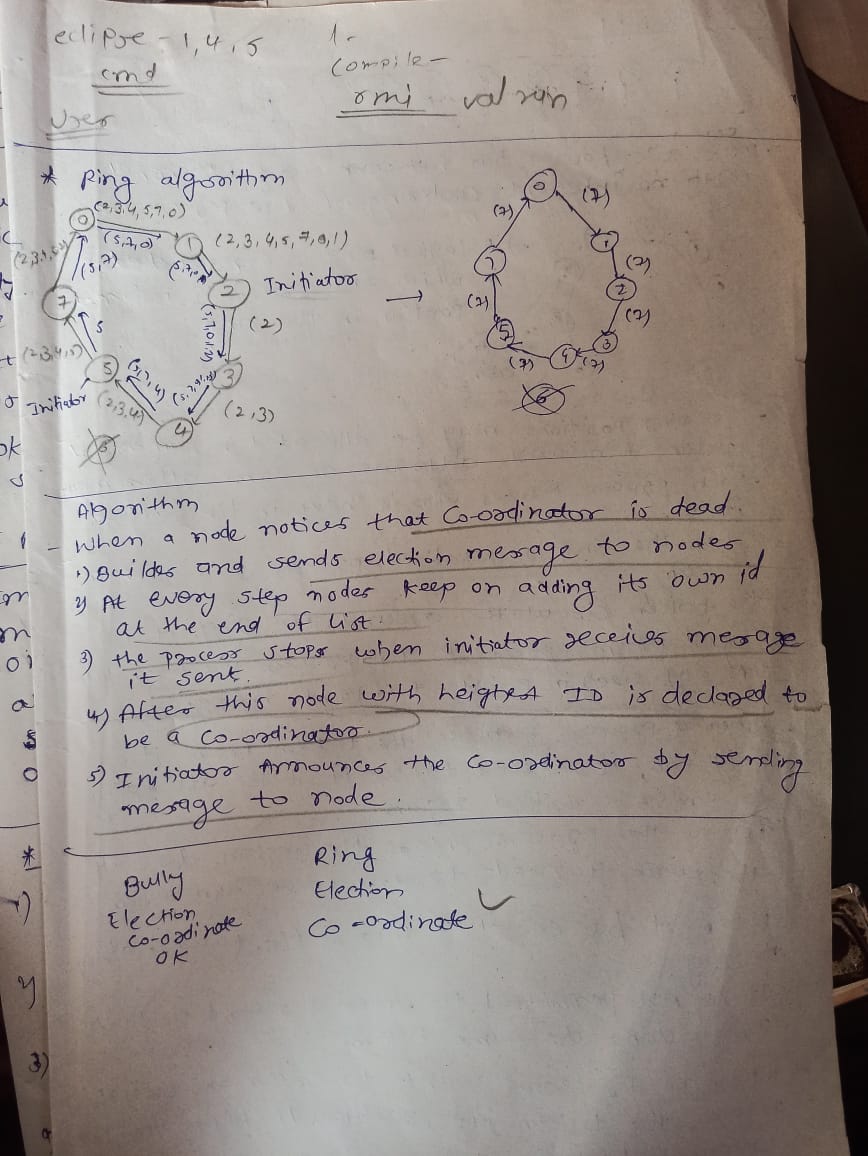 eclipse - 1, 4, 5
1-
cmd
Compile -
rmi val run
User
* Ring algorithm
(2,3,4,5,7,0)
0
(5,7,0)
1
(2, 3, 4, 5, 7, 0, 1)
(5,7)
7
2
Initiator
(2)
5
(2,3,4,5)
5
3
Initiator
(2,3,4)
4
(2,3)
→
0
(7)
(7)
1
7
(7)
2
(7)
(7)
5
3
(7)
4
(7)
6
Algorithm
- When a node notices that Co-ordinator is dead.
1) Builds and sends election message to nodes
2) At every step nodes keep on adding its own id
at the end of list.
3) the process stops when initiator receives message
it sent.
4) After this node with heighest ID is declared to
be a co-ordinator.
5) Initiator Announces the Co-ordinator by sending
message to node.
Bully
Ring
Election
Election
Co-ordinate
Co-ordinate
OK